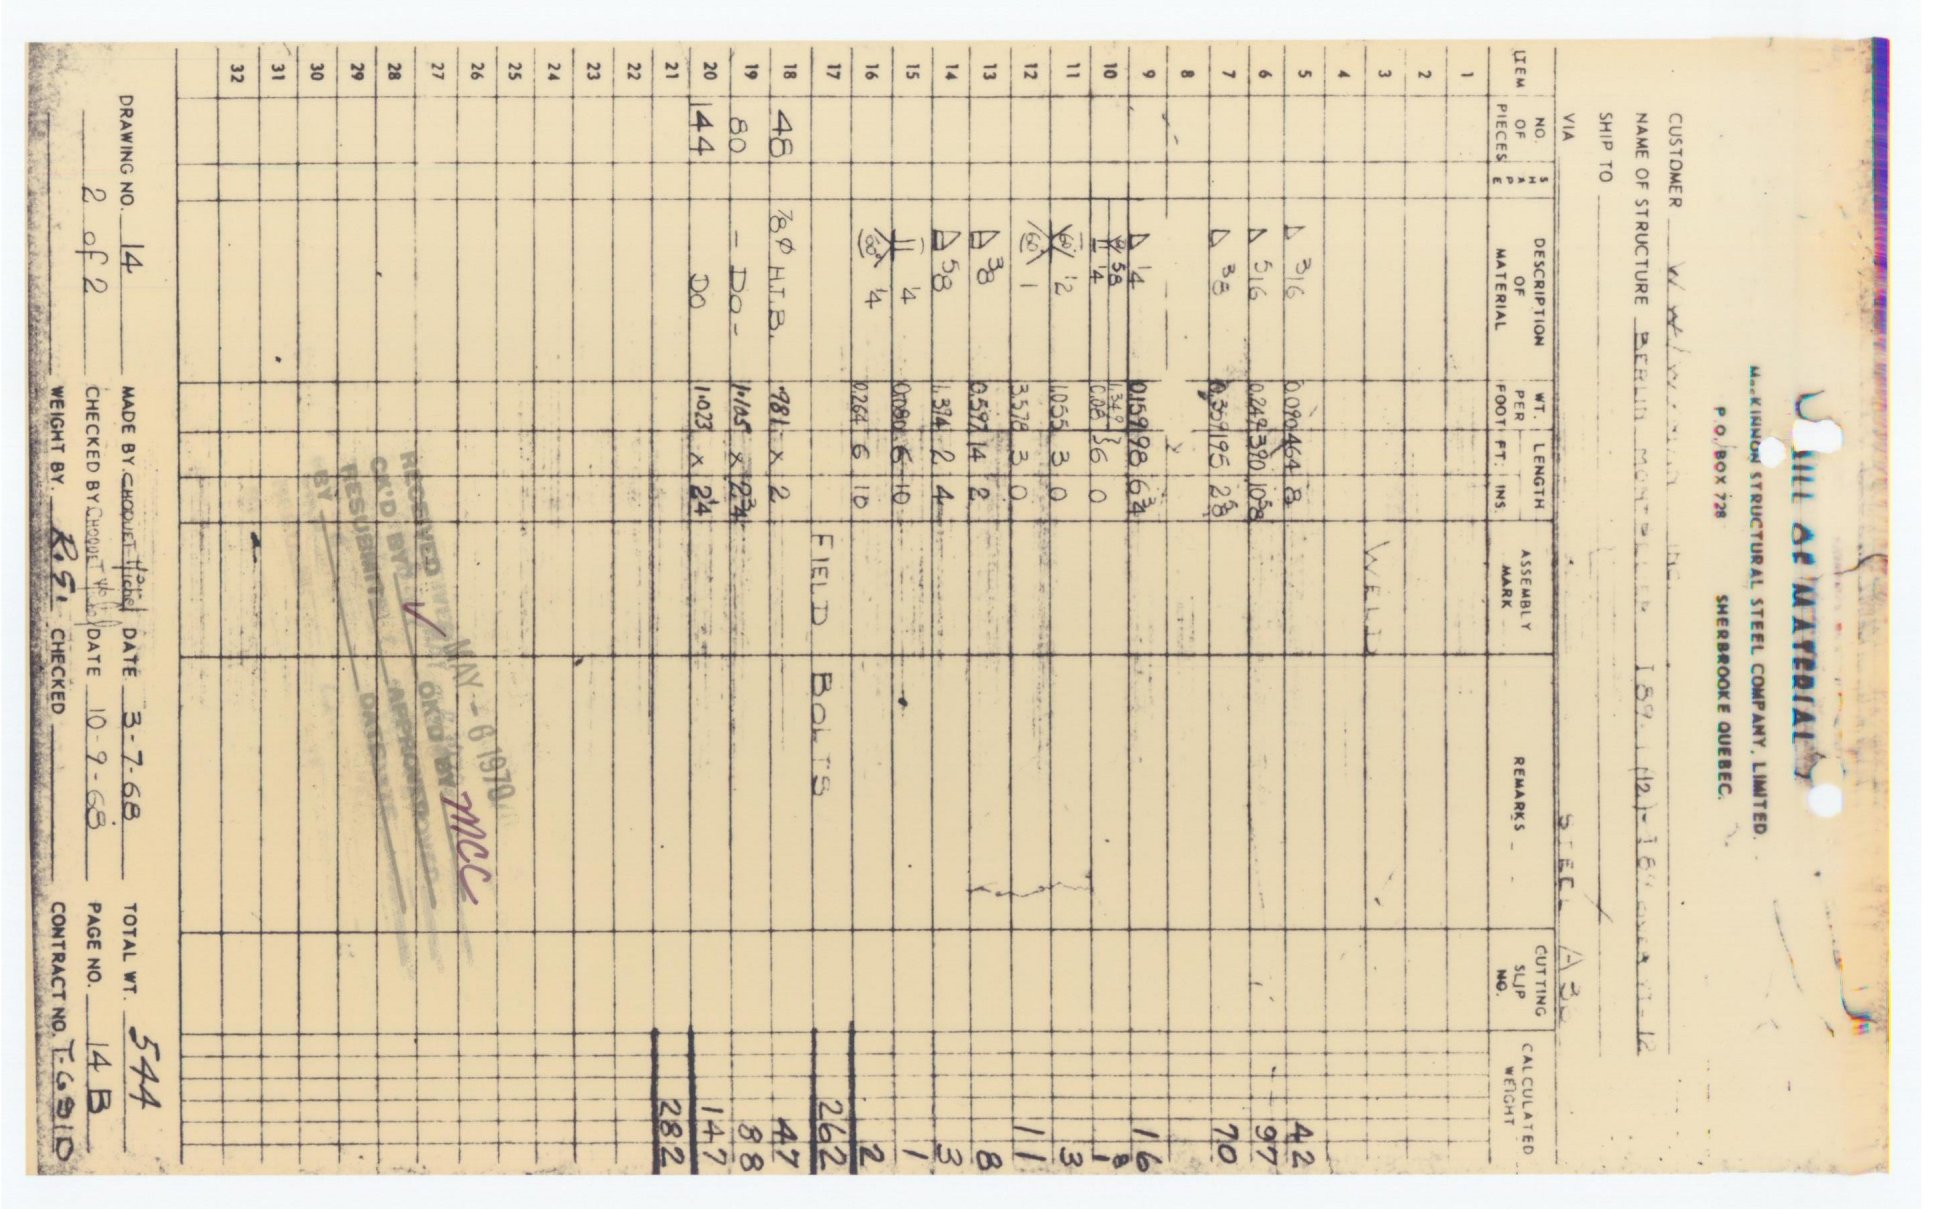 BILL OF MATERIAL
MacKINNON STRUCTURAL STEEL COMPANY, LIMITED.
P.O. BOX 728 SHERBROOKE QUEBEC.
CUSTOMER
NAME OF STRUCTURE BERLIN MONTPELIER I 89
SHIP TO
VIA STEEL A36
ITEM NO. OF PIECES SHAPE DESCRIPTION OF MATERIAL WT. PER FOOT LENGTH FT. INS. ASSEMBLY MARK REMARKS CUTTING SLIP NO. CALCULATED WEIGHT
1
2
3 WELD
4
5 3/16 0.090 464 8 42
6 5/16 0.249 390 10 5/8 97
7 3/8 0.359 195 2 5/8 70
8
9 1/4 0.159 98 6 3/4 16
10 5/8 1/4 1.349 0.08 } 6 0 8 1
11 60 1/2 1.055 3 0 3
12 60 1 3.578 3 0 11
13 3/8 0.597 14 2 8
14 5/8 1.394 2 4 3
15 1/4 0.080 6 10 1
16 60° 1/4 0.264 6 10 2
17 FIELD BOLTS 262
18 48 7/8 Ø H.T.B. .981 x 2 47
19 80 - DO - 1.105 x 2 3/4 88
20 144 DO 1.023 x 2 1/4 147
21 282
22
23
24
25
26
27
28
29
30
31
32
RECEIVED MAY - 6 1970
CK'D BY OK'D BY MCC
RESUBMITTED APPROVED
BY DATE
DRAWING NO. 14 MADE BY CHOQUET Michel DATE 3-7-68 TOTAL WT. 544
2 of 2 CHECKED BY CHOQUET DATE 10-9-68 PAGE NO. 14 B
WEIGHT BY. R.G. CHECKED CONTRACT NO.